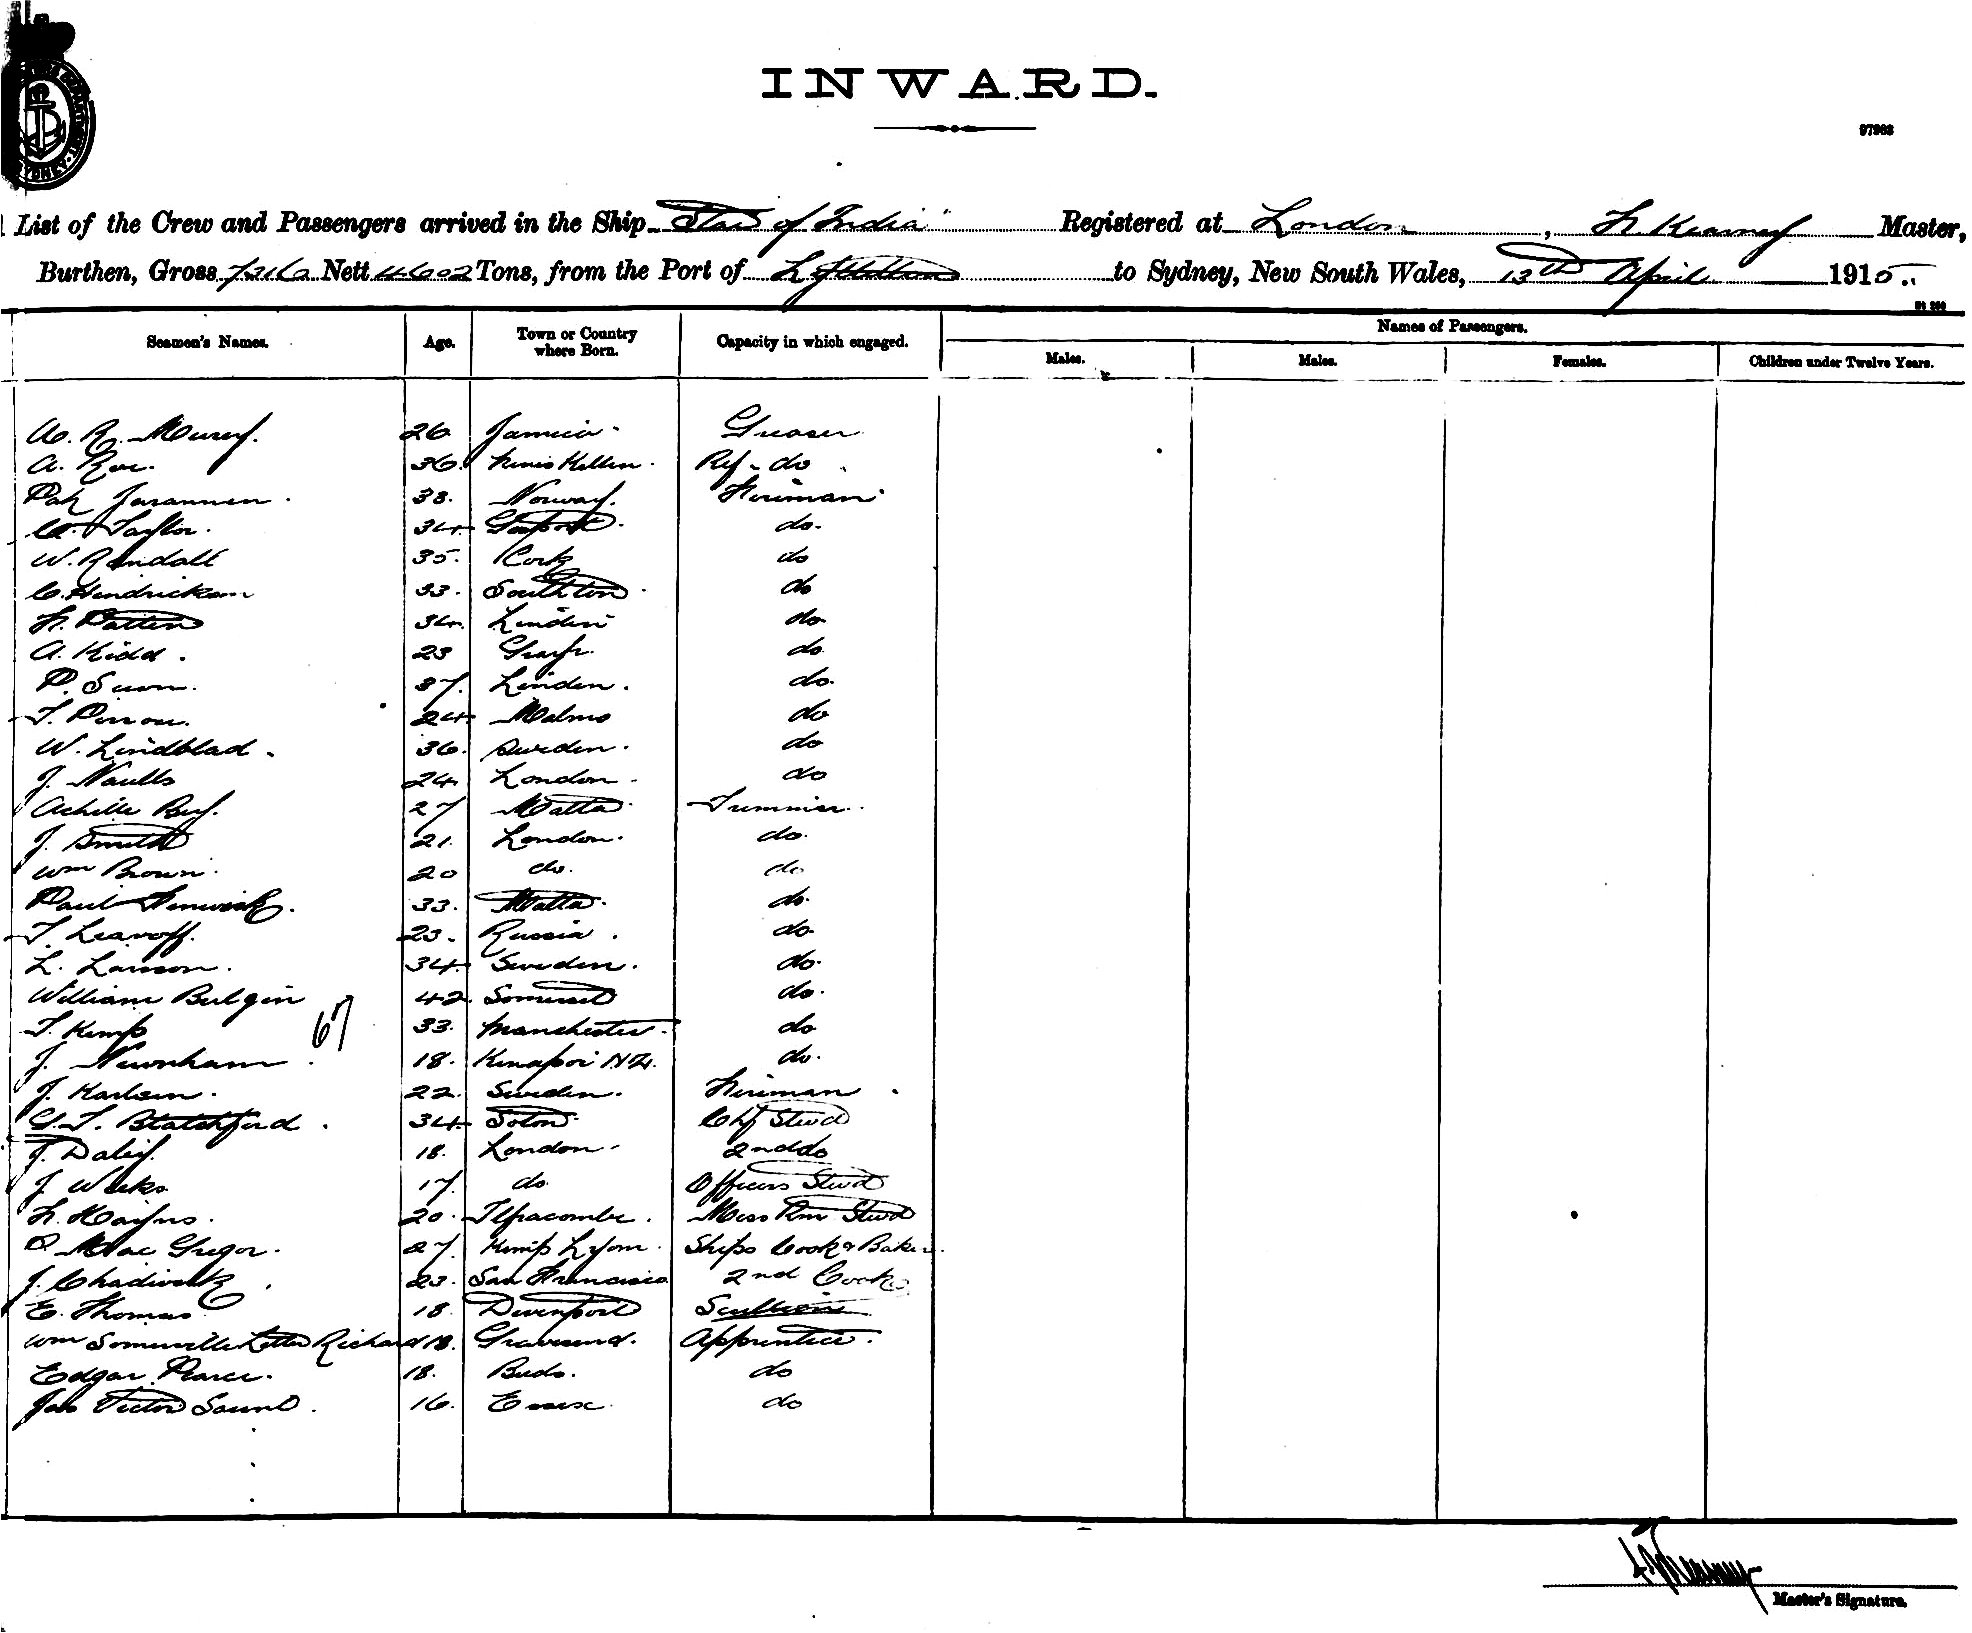 INWARD.
97963
List of the Crew and Passengers arrived in the Ship "Star of India" Registered at London, H Kearney Master,
Burthen, Gross 7316 Nett 4602 Tons, from the Port of Lyttelton to Sydney, New South Wales, 13th April 1915.
Seamen's Names. Age. Town or Country where Born. Capacity in which engaged. Names of Passengers.
Males. Males. Females. Children under Twelve Years.
A. R. 26 Greaser
A. Roe. 36. Ref. do
33. Norway. Fireman
Taylor. 34 Gosport. do.
W. Randall 35. Cork do
C. Hendricksen 33. Southton do
H. Patten 34. do
A. Kidd. 23 do
P. 37. do.
T. 24 Malmo do
W. Lindblad. 36. Sweden. do
J. Naulls 24. London. do
Achille 27 Malta Trimmer.
J. Smith 21. London. do.
Wm Brown. 20 do. do
Paul Fenwick. 33. Malta. do.
T. 23. Russia. do
L. Larsson. 34. Sweden. do.
William Bulgin 42. Somerset do.
T. Kemp 33. Manchester. do
67
J. Newnham 18. Kaiapoi N.Z. do.
J. Karlsen. 22. Sweden. Fireman
G. T. Blatchford. 34 Soton Chf Stewd
J. Daley. 18. London. 2nd do
J. Weeks 17. do Officers Stewd
H. Haynes. 20. Ilfracombe. Mess Rm Stewd
Mac Gregor. 27. Ships Cook & Baker.
J. Chadwick. 23. San Francisco 2nd Cook
E. Thomas 18. Devenport Scullion
Wm Somerville Richard 18. Gravesend. Apprentice.
Edgar Pearce. 18. Beds. do
Jas Victor 16. Essex do
Master's Signature.